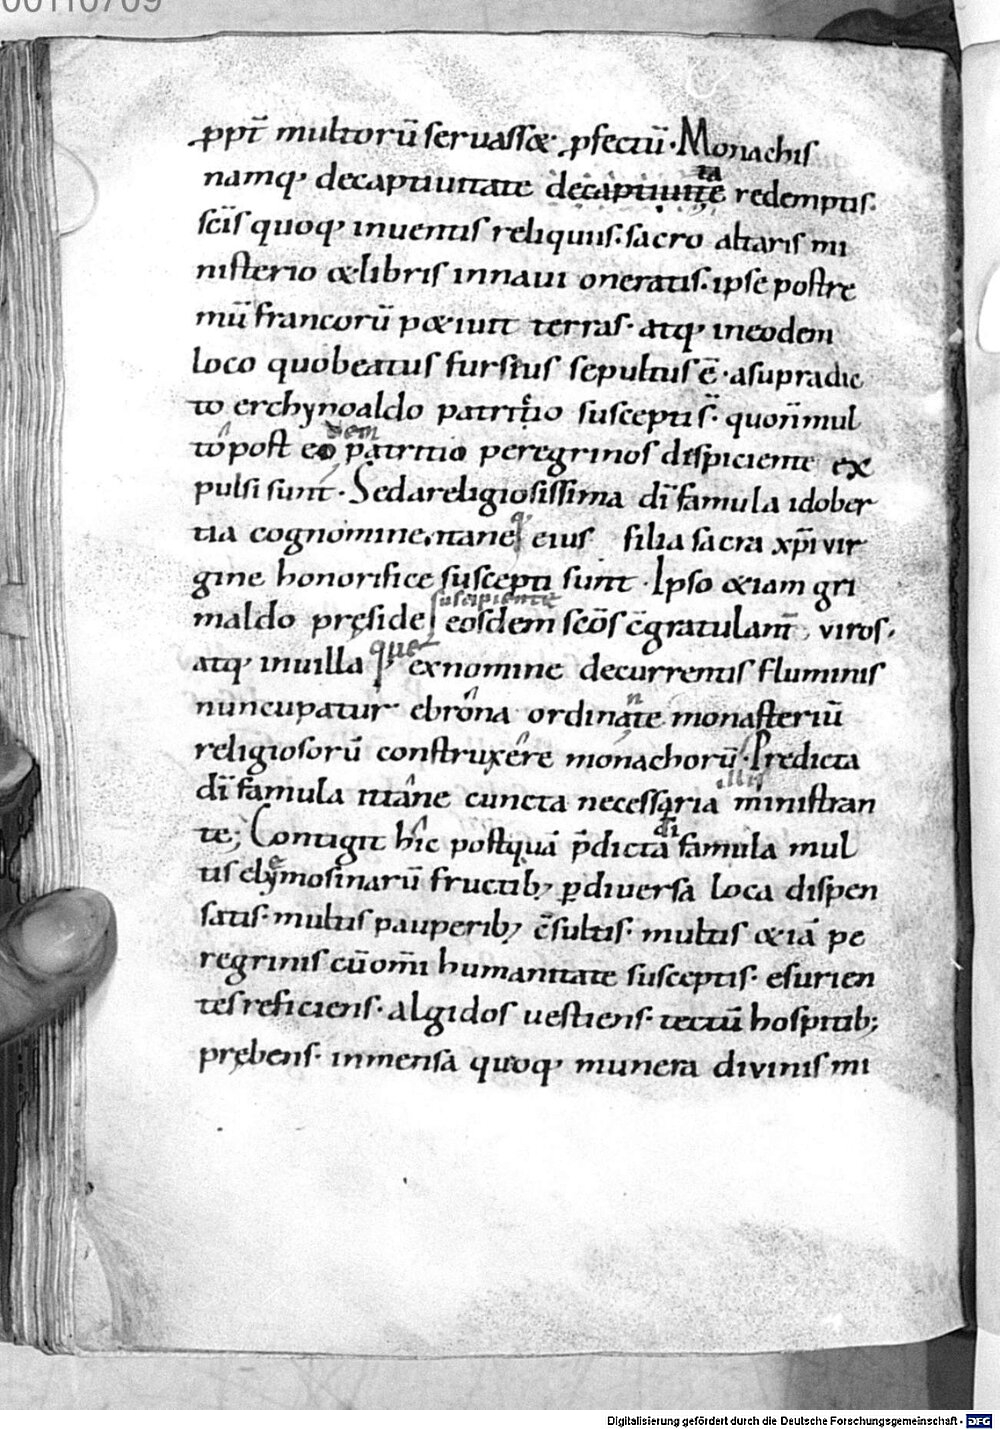 00110709
ꝓpt̄ multorū seruasset ꝓfectū. Monachis
namq; decaptiuitate decaptiuitate redemptis.
sc̄is quoq; inuentis reliquiis. sacro altaris mi
nisterio & libris innaui oneratis. ipse postre
mū francorū petiuit terras. atq; ineodem
loco quobeatus furseus sepultus ē. asupradic
to erchynoaldo patritio susceptis. quōn mul
tō post eodem patritio peregrinos dispiciente ex
pulsi sunt. Sedareligiosissima dī famula idober
tia cognomine itane q; eius filia sacra xp̄i vir
gine honorifice suscepti sunt. Ipso etiam gri
maldo pręside suscipiente eosdem sc̄ōs c̄gratulant̄ viros.
atq; inuilla que exnomine decurrentis fluminis
nuncupatur ebrōna ordinante monasteriū
religiosorū construxere monachorū. Predicta
dī famula itāne cuncta necessaria illis ministran
te; Contigit hīc postquā p̄dicta dī famula mul
tis elyemosinarū fructib; ꝑdiuersa loca dispen
satis. multis pauperib; c̄sultis. multis etiā pe
regrinis cū om̄i humanitate susceptis. esurien
tes reficiens. algidos uestiens. tectū hospitib;
prębens. inmensa quoq; munera divinis mi
Digitalisierung gefördert durch die Deutsche Forschungsgemeinschaft - DFG